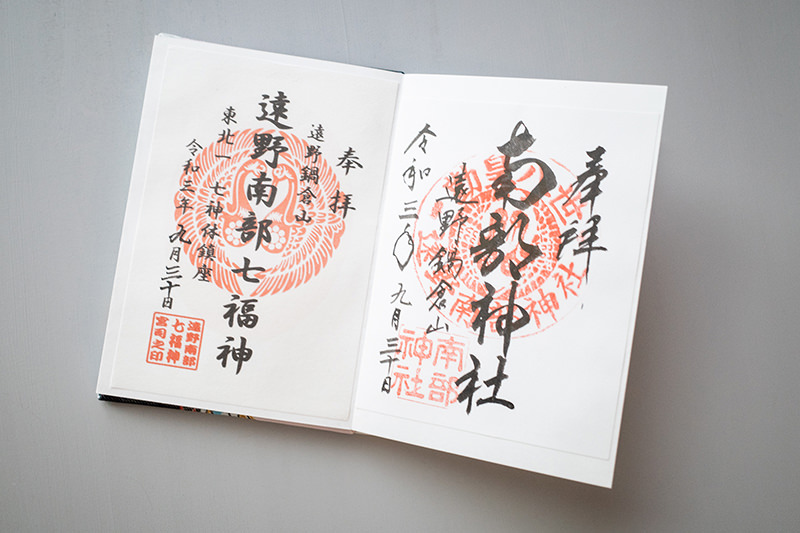 奉拝
南部神社
遠野鍋倉山
令和三年九月三十日
南部
神社
奉拝
遠野鍋倉山
遠野南部七福神
東北一七神体鎮座
令和三年九月三十日
遠野南部
七福神
宮司之印